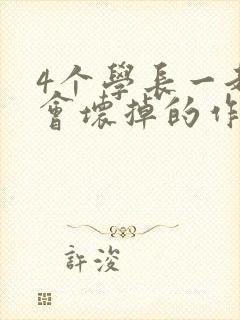 4个學長一
會壞掉的作
許浚